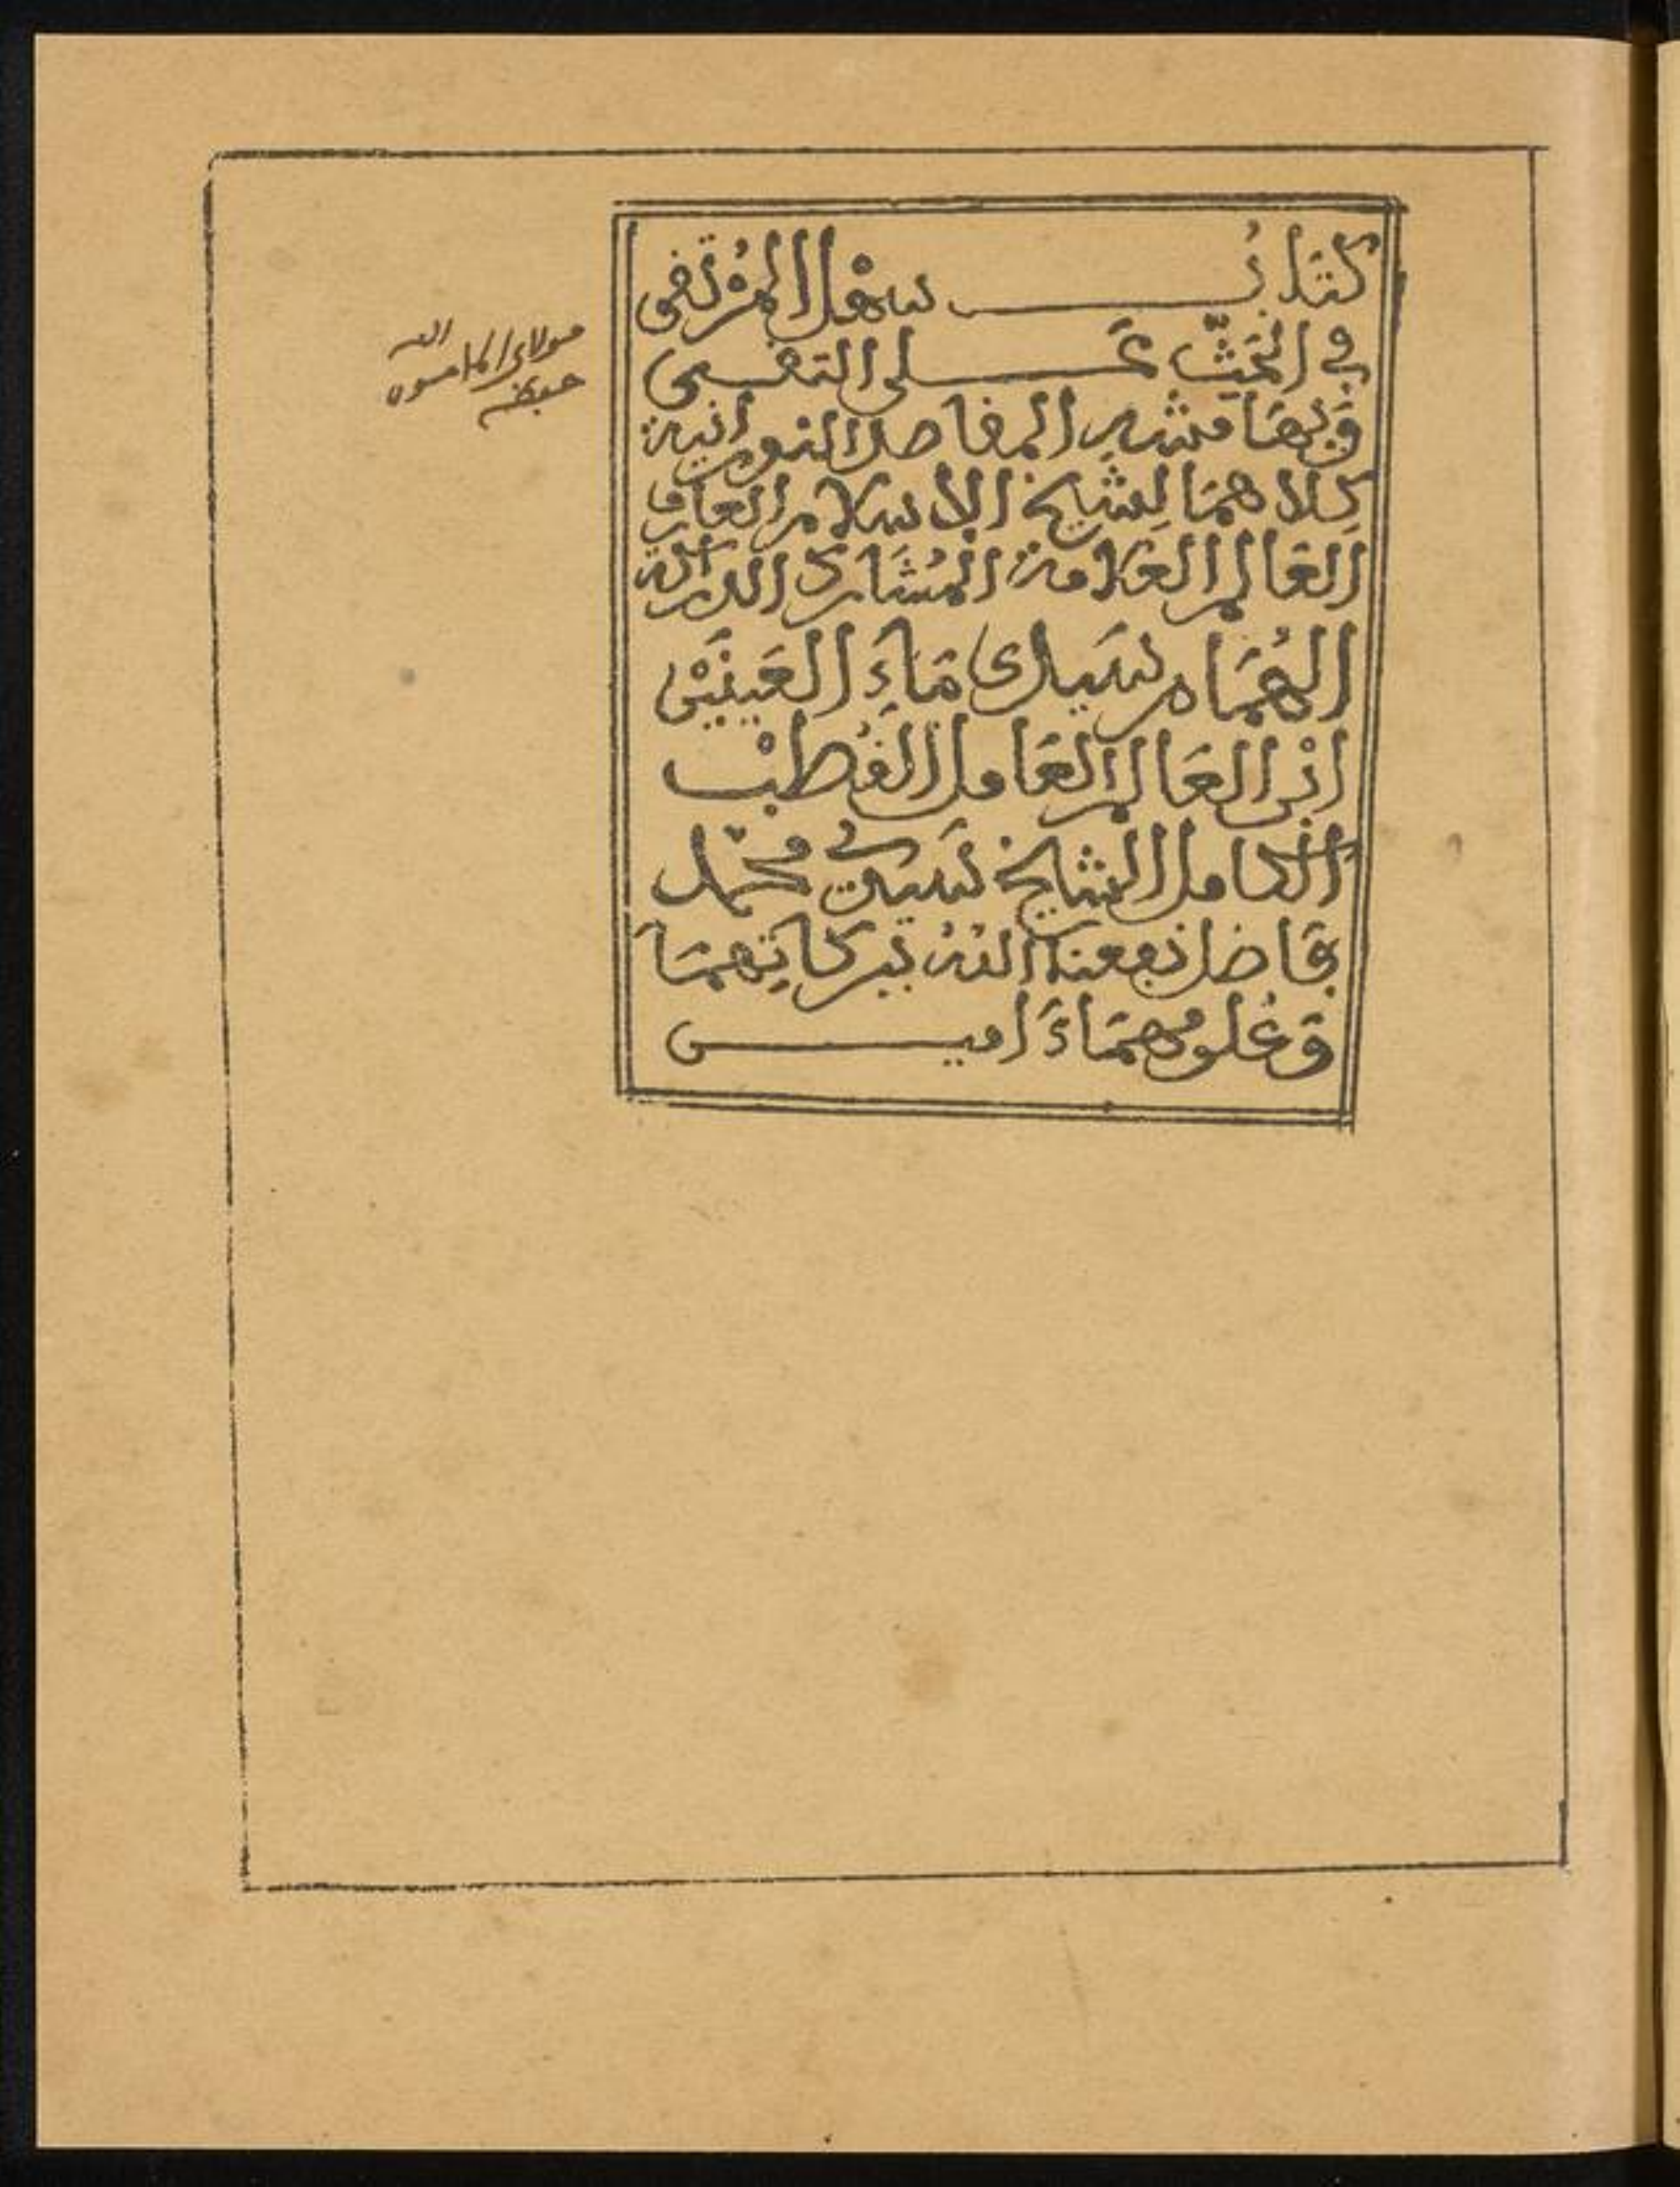 كِتَابُ سَهْلُ الْمُرْتَقَى
في الحَثِّ عَلى التقى
وَبهَامشه المقاصد النورانية
كِلاهمَا لِشيخ الإسلام العارف
العَالم العَلامة المُشَارك الدراكة
الهُمَام سَيدى مَاءَ العَينَيْن
ابْن العَالم العَامل القُطبْ
الكامل الشيخ سَيدي محمد
فَاضل نفعنا اللهُ ببركاتِهمَا
وَعُلومهمَا ءَامين
مولاي المامون